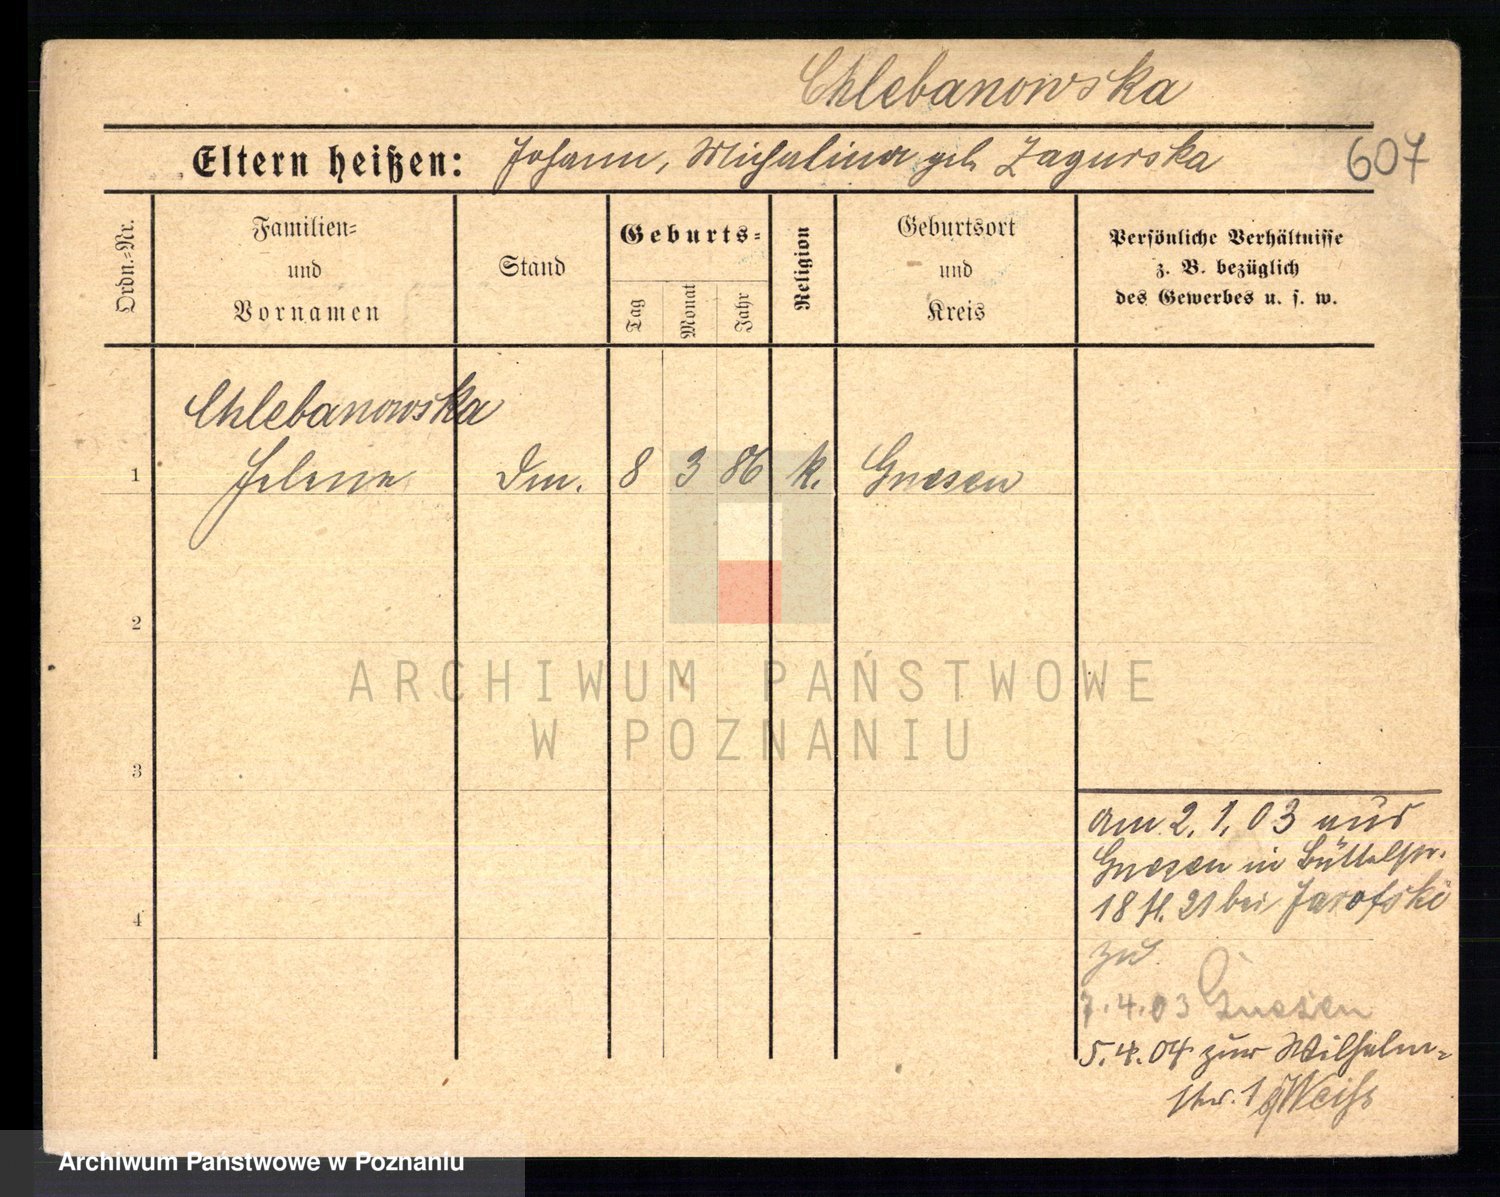 Chlebanowska
Eltern heißen: Johann, Michalina geb Zagurska
607
Ordn.=Nr.
Familien=
und
Vornamen
Stand
Geburts=
Tag
Monat
Jahr
Religion
Geburtsort
und
Kreis
Persönliche Verhältnisse
z. B. bezüglich
des Gewerbes u. s. w.
Chlebanowska
1 Helene Dm. 8 3 86 k. Gnesen
2
3
4
am 2. 1. 03 aus
Gnesen in Büttelstr.
18 H. 21 bei Jarofski
zu
7. 4. 03 Gnesen
5. 4. 04 zur Wilhelm=
str. 1 Weiss
ARCHIWUM PAŃSTWOWE
W POZNANIU
Archiwum Państwowe w Poznaniu